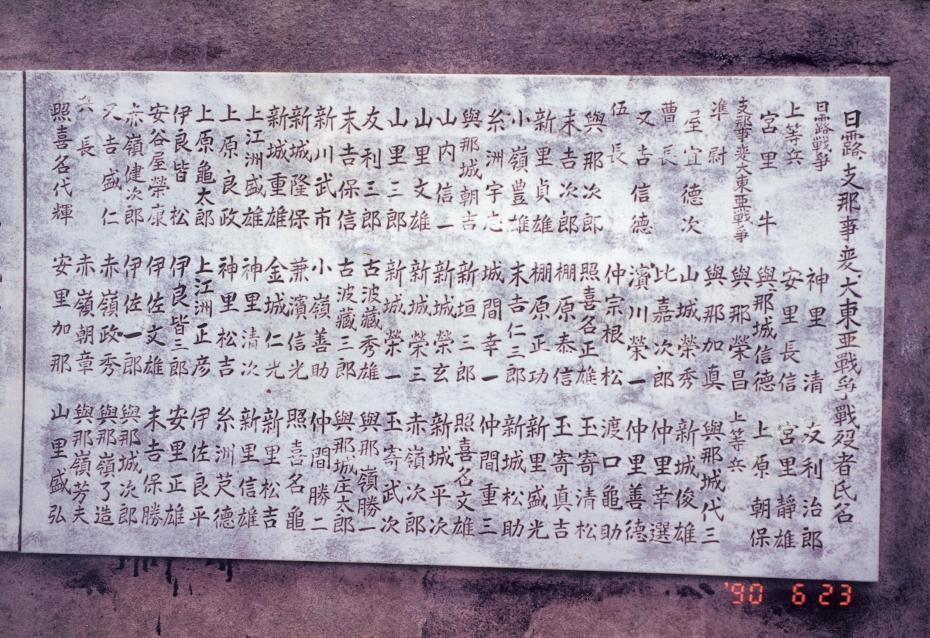 日露支那事変大東亜戦争戦歿者氏名
日露戦争
上等兵
宮里牛
支那事変大東亜戦争
準尉
屋宜德次
曹長
又吉信德
伍長
與那次郎
末吉次郎
新里貞雄
小嶺豊雄
糸洲宇志
與那城朝吉
山内信一
山里文雄
山里三郎
友利三郎
末吉保信
新川武市
新城隆保
新城重雄
上江洲盛雄
上原良政
上原亀太郎
伊良皆松
安谷屋榮康
赤嶺健次郎
又吉盛仁
兵長
照喜名代輝
神里清
安里長信
與那城信德
與那榮昌
與那加真
山城榮秀
比嘉次郎
濱川榮一
仲宗根松
照喜名正雄
棚原泰信
棚原正功
末吉仁三郎
城間幸一
新垣三郎
新城榮玄
新城榮三
新城榮一
古波藏秀雄
古波藏三郎
小嶺善助
兼濱信光
金城仁光
神里清次
神里松吉
上江洲正彦
伊良皆三郎
伊佐文雄
伊佐一郎
赤嶺政秀
赤嶺朝章
安里加那
友利治郎
宮里靜雄
上原朝保
上等兵
與那城代三
新城俊雄
仲里幸選
仲里善德
渡口亀助
玉寄清松
玉寄真吉
新里盛光
新城松助
仲間重三
照喜名文雄
新城平次
赤嶺次郎
玉寄武次
與那嶺勝一
與那城庄太郎
仲間勝二
照喜名亀
新里松吉
新里信雄
糸洲英德
伊佐良平
安里正雄
末吉保勝
與那城次郎
與那嶺了造
與那嶺芳夫
山里盛弘
'90 6 23